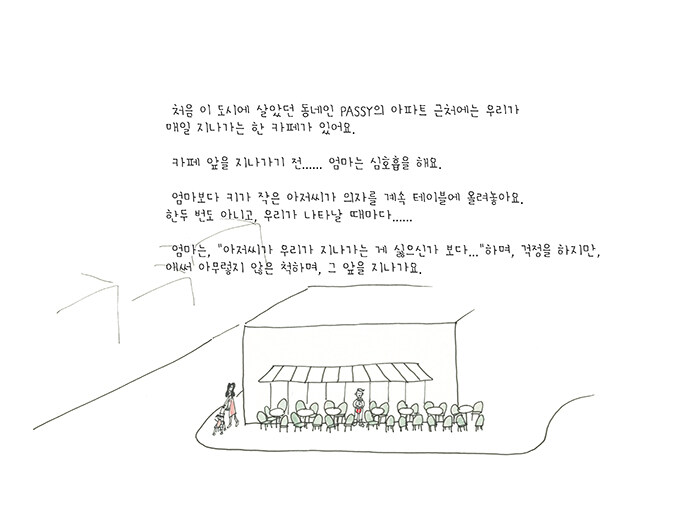 처음 이 도시에 살았던 동네인 PASSY의 아파트 근처에는 우리가
매일 지나가는 한 카페가 있어요.
카페 앞을 지나가기 전...... 엄마는 심호흡을 해요.
엄마보다 키가 작은 아저씨가 의자를 계속 테이블에 올려놓아요.
한두 번도 아니고, 우리가 나타날 때마다......
엄마는, "아저씨가 우리가 지나가는 게 싫으신가 보다..."하며, 걱정을 하지만,
애써 아무렇지 않은 척하며, 그 앞을 지나가요.